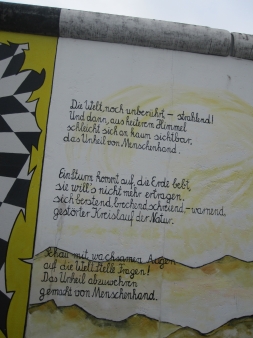 Die Welt, noch unberührt – strahlend!
Und dann, aus heiterem Himmel
schleicht sich an kaum sichtbar,
das Unheil von Menschenhand.
Ein Sturm kommt auf, die Erde bebt,
sie will's nicht mehr ertragen,
sich berstend, brechend, schreiend, – warnend,
gestörter Kreislauf der Natur.
Schau mit wachsamen Augen
auf die Welt. Stelle Fragen!
Das Unheil abzuwehren
gemacht von Menschenhand.